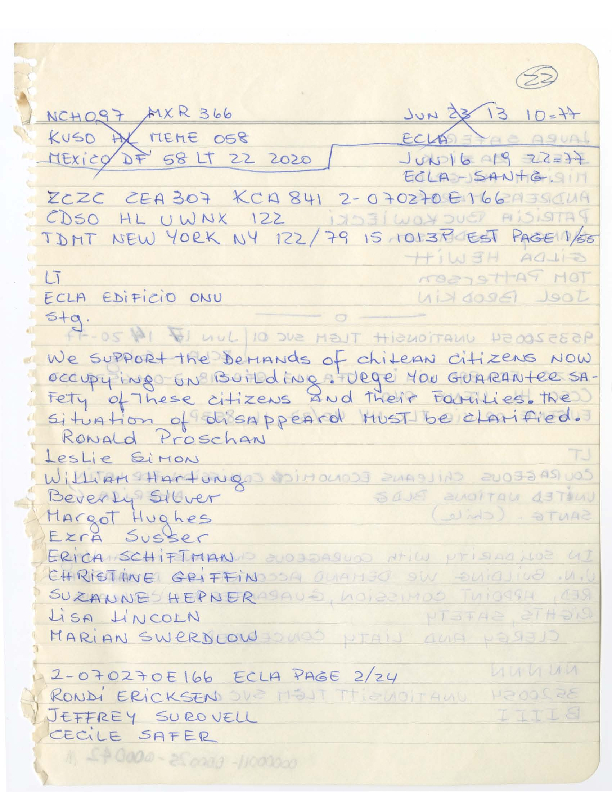 22
NCH097 MXR 366 JUN 23 13 10=77
KUSO HL MEME 058 ECLA
MEXICO DF 58 LT 22 2020 JUN 16 19 22=77
ECLA SANTG.
ZCZC CEA 307 KCA 841 2-070270E166
CDSO HL UWNX 122
TDMT NEW YORK NY 122/79 15 1013P EST PAGE 1/55
LT
ECLA EDIFICIO ONU
Stg.
WE SUPPORT THE DEMANDS OF CHILEAN CITIZENS NOW
OCCUPYING UN BUILDING. URGE YOU GUARANTEE SA-
FETY OF THESE CITIZENS AND THEIR FAMILIES. THE
SITUATION OF DISAPPEARD MUST BE CLARIFIED.
RONALD PROSCHAN
LESLIE SIMON
WILLIAM HARTUNG
BEVERLY SILVER
MARGOT HUGHES
EZRA SUSSER
ERICA SCHIFTMAN
CHRISTINE GRIFFIN
SUZANNE HEPNER
LISA LINCOLN
MARIAN SWERDLOW
2-070270E166 ECLA PAGE 2/24
RONDI ERICKSEN
JEFFREY SUROVELL
CECILE SAFER